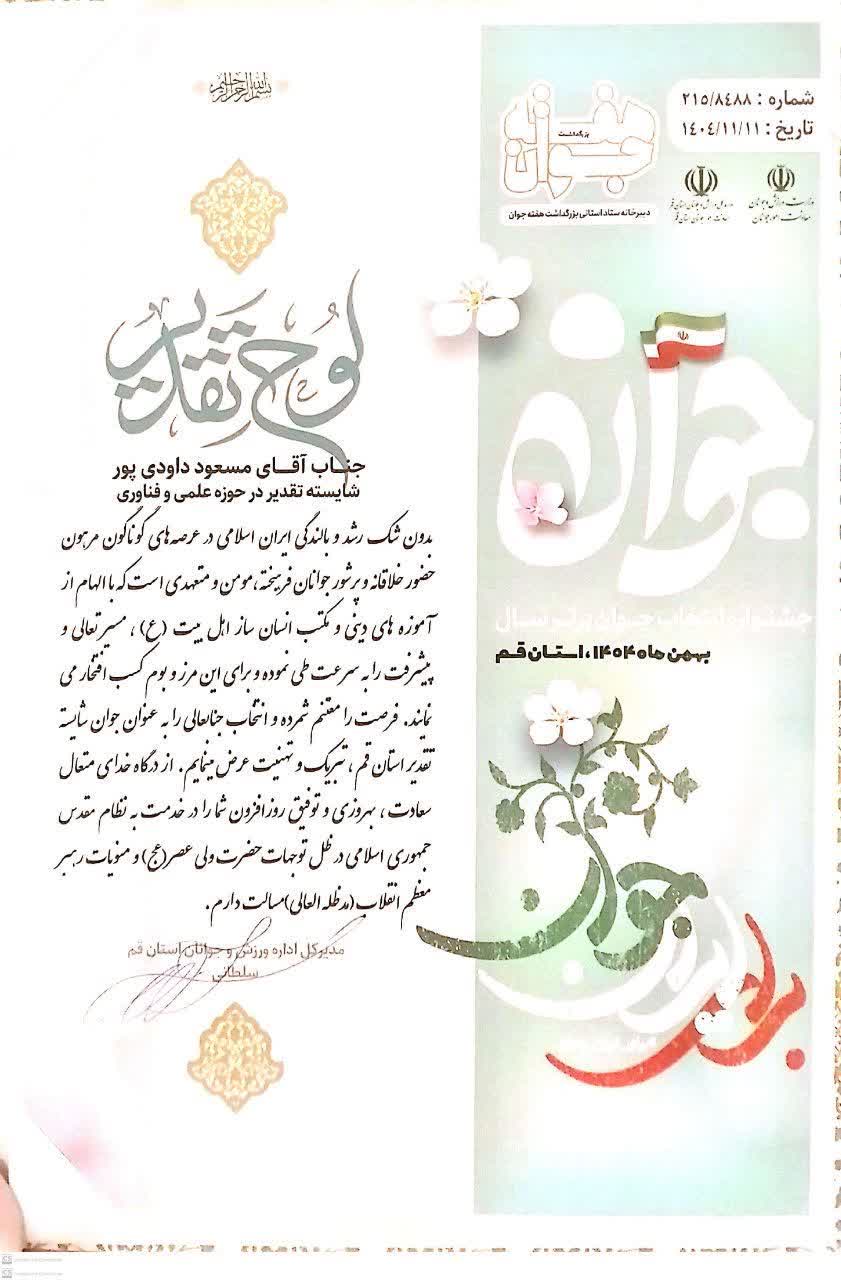 بسم الله الرحمن الرحیم
شماره : ۲۱۵/۸۴۸۸
تاریخ : ۱۴۰۴/۱۱/۱۱
وزارت ورزش و جوانان
معاونت امور جوانان
اداره کل ورزش و جوانان استان قم
معاونت امور جوانان استان قم
بزرگداشت
هفته
جوان
دبیرخانه ستاد استانی بزرگداشت هفته جوان
لوح تقدیر
جناب آقای مسعود داودی پور
شایسته تقدیر در حوزه علمی و فناوری
بدون شک رشد و بالندگی ایران اسلامی در عرصه های گوناگون مرهون
حضور خلاقانه و پرشور جوانان فرهیخته، مومن و متعهدی است که با الهام از
آموزه های دینی و مکتب انسان ساز اهل بیت (ع) ، مسیر تعالی و
پیشرفت را به سرعت طی نموده و برای این مرز و بوم کسب افتخار می
نمایند. فرصت را مغتنم شمرده و انتخاب جنابعالی را به عنوان جوان شایسته
تقدیر استان قم ، تبریک و تهنیت عرض مینمایم. از درگاه خدای متعال
سعادت ، بهروزی و توفیق روزافزون شما را در خدمت به نظام مقدس
جمهوری اسلامی در ظل توجهات حضرت ولی عصر(عج) و منویات رهبر
معظم انقلاب (مدظله العالی) مسالت دارم.
مدیرکل اداره ورزش و جوانان استان قم
سلطانی
جوان
جشنواره انتخاب جوان برتر سال
بهمن ماه ۱۴۰۴ ، استان قم
جوان
ایران
برای